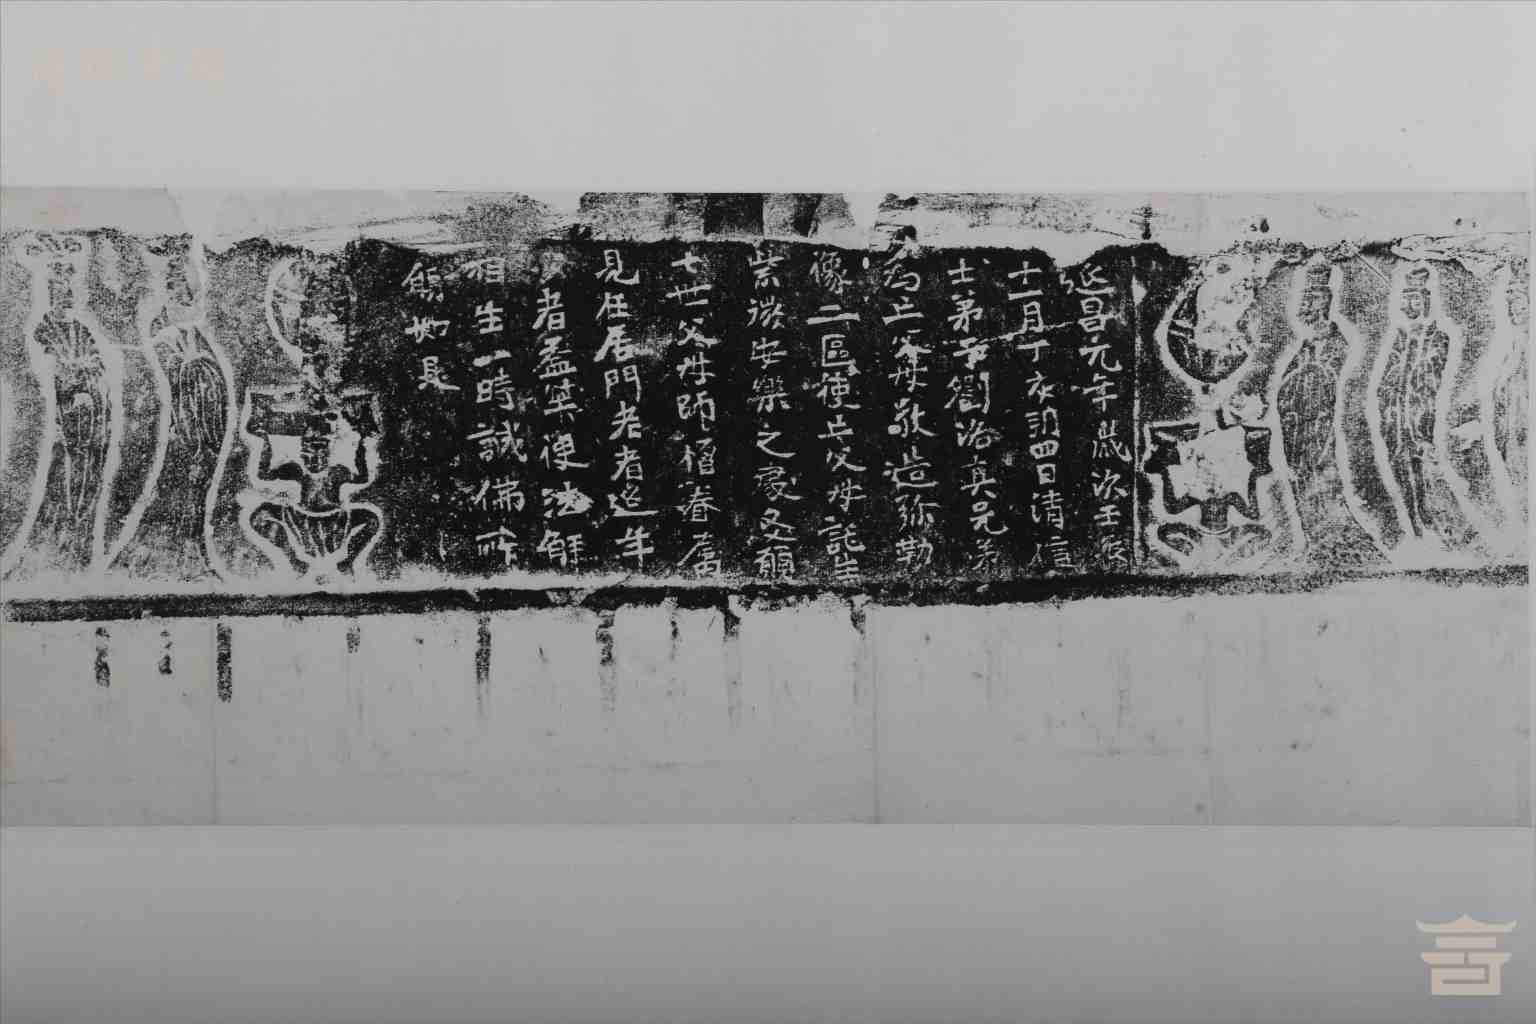 延昌元年歲次壬辰
十一月丁亥朔四日清信
士弟子劉洛真兄弟
為亡父母敬造弥勒
像二區使亡父母託生
紫微安樂之處又願
七世父母師僧眷属
見在居門老者延年
少者益筭使法界
有生一時成佛所
願如是